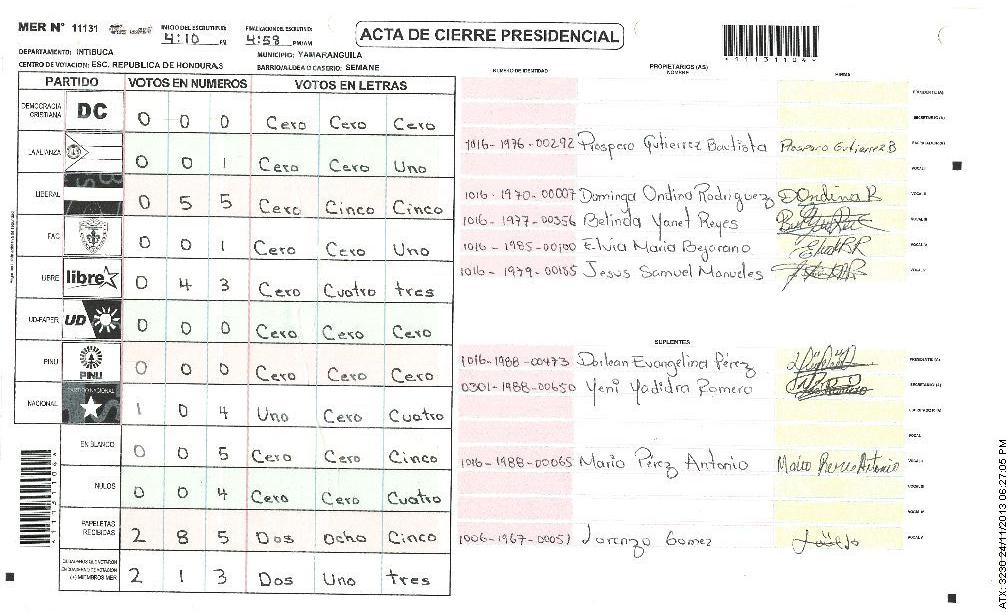 MER N° 11131 INICIO DEL ESCRUTINIO: FINALIZACION DEL ESCRUTINIO: ACTA DE CIERRE PRESIDENCIAL
4:10 PM 4:58 PM/AM
DEPARTAMENTO: INTIBUCA MUNICIPIO: YAMARANGUILA
CENTRO DE VOTACION: ESC. REPUBLICA DE HONDURAS BARRIO/ALDEA O CASERIO: SEMANE
PARTIDO VOTOS EN NUMEROS VOTOS EN LETRAS
DEMOCRACIA CRISTIANA DC 0 0 0 Cero Cero Cero
LA ALIANZA 0 0 1 Cero Cero Uno
LIBERAL 0 5 5 Cero Cinco Cinco
FAC 0 0 1 Cero Cero Uno
LIBRE libre 0 4 3 Cero Cuatro tres
UD-FAPER UD 0 0 0 Cero Cero Cero
PINU PINU 0 0 0 Cero Cero Cero
NACIONAL PARTIDO NACIONAL 1 0 4 Uno Cero Cuatro
EN BLANCO 0 0 5 Cero Cero Cinco
NULOS 0 0 4 Cero Cero Cuatro
PAPELETAS RECIBIDAS 2 8 5 Dos Ocho Cinco
CIUDADANOS QUE VOTARON EN CUADERNO DE VOTACION (+) MIEMBROS MER 2 1 3 Dos Uno tres
NUMERO DE IDENTIDAD PROPIETARIOS (AS) NOMBRE FIRMA
PRESIDENTE (A)
SECRETARIO (A)
1016-1976-00292 Prospero Gutierrez Bautista Prospero Gutierrez B ESCRUTADOR (A)
VOCAL I
1016-1970-00007 Dominga Ondina Rodriguez D Ondina R VOCAL II
1016-1977-00356 Belinda Yanet Reyes VOCAL III
1016-1985-00100 Elvia Maria Bejarano VOCAL IV
1016-1979-00185 Jesus Samuel Manueles VOCAL V
SUPLENTES
1016-1988-00473 Dorlean Evangelina Pérez PRESIDENTE (A)
0301-1988-00650 Yeni Yadidra Romero SECRETARIO (A)
ESCRUTADOR (A)
VOCAL I
1016-1988-00065 Mario Pérez Antonio VOCAL II
VOCAL III
VOCAL IV
1006-1967-00051 Lorenzo Gomez VOCAL V
ATX: 3230-24/11/2013 06:27:05 PM